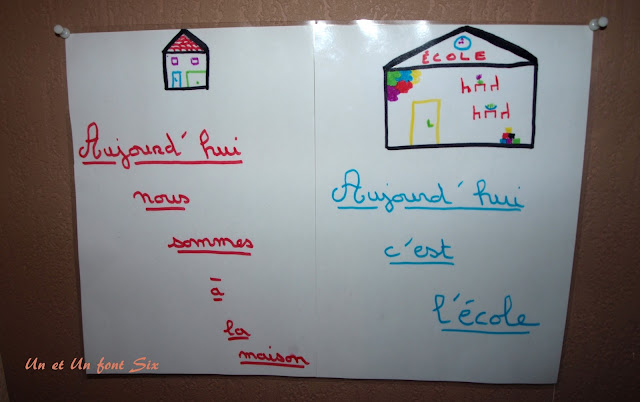 ÉCOLE
Aujourd'hui
nous
sommes
à
la
maison
Aujourd'hui
c'est
l'école
Un et Un font Six